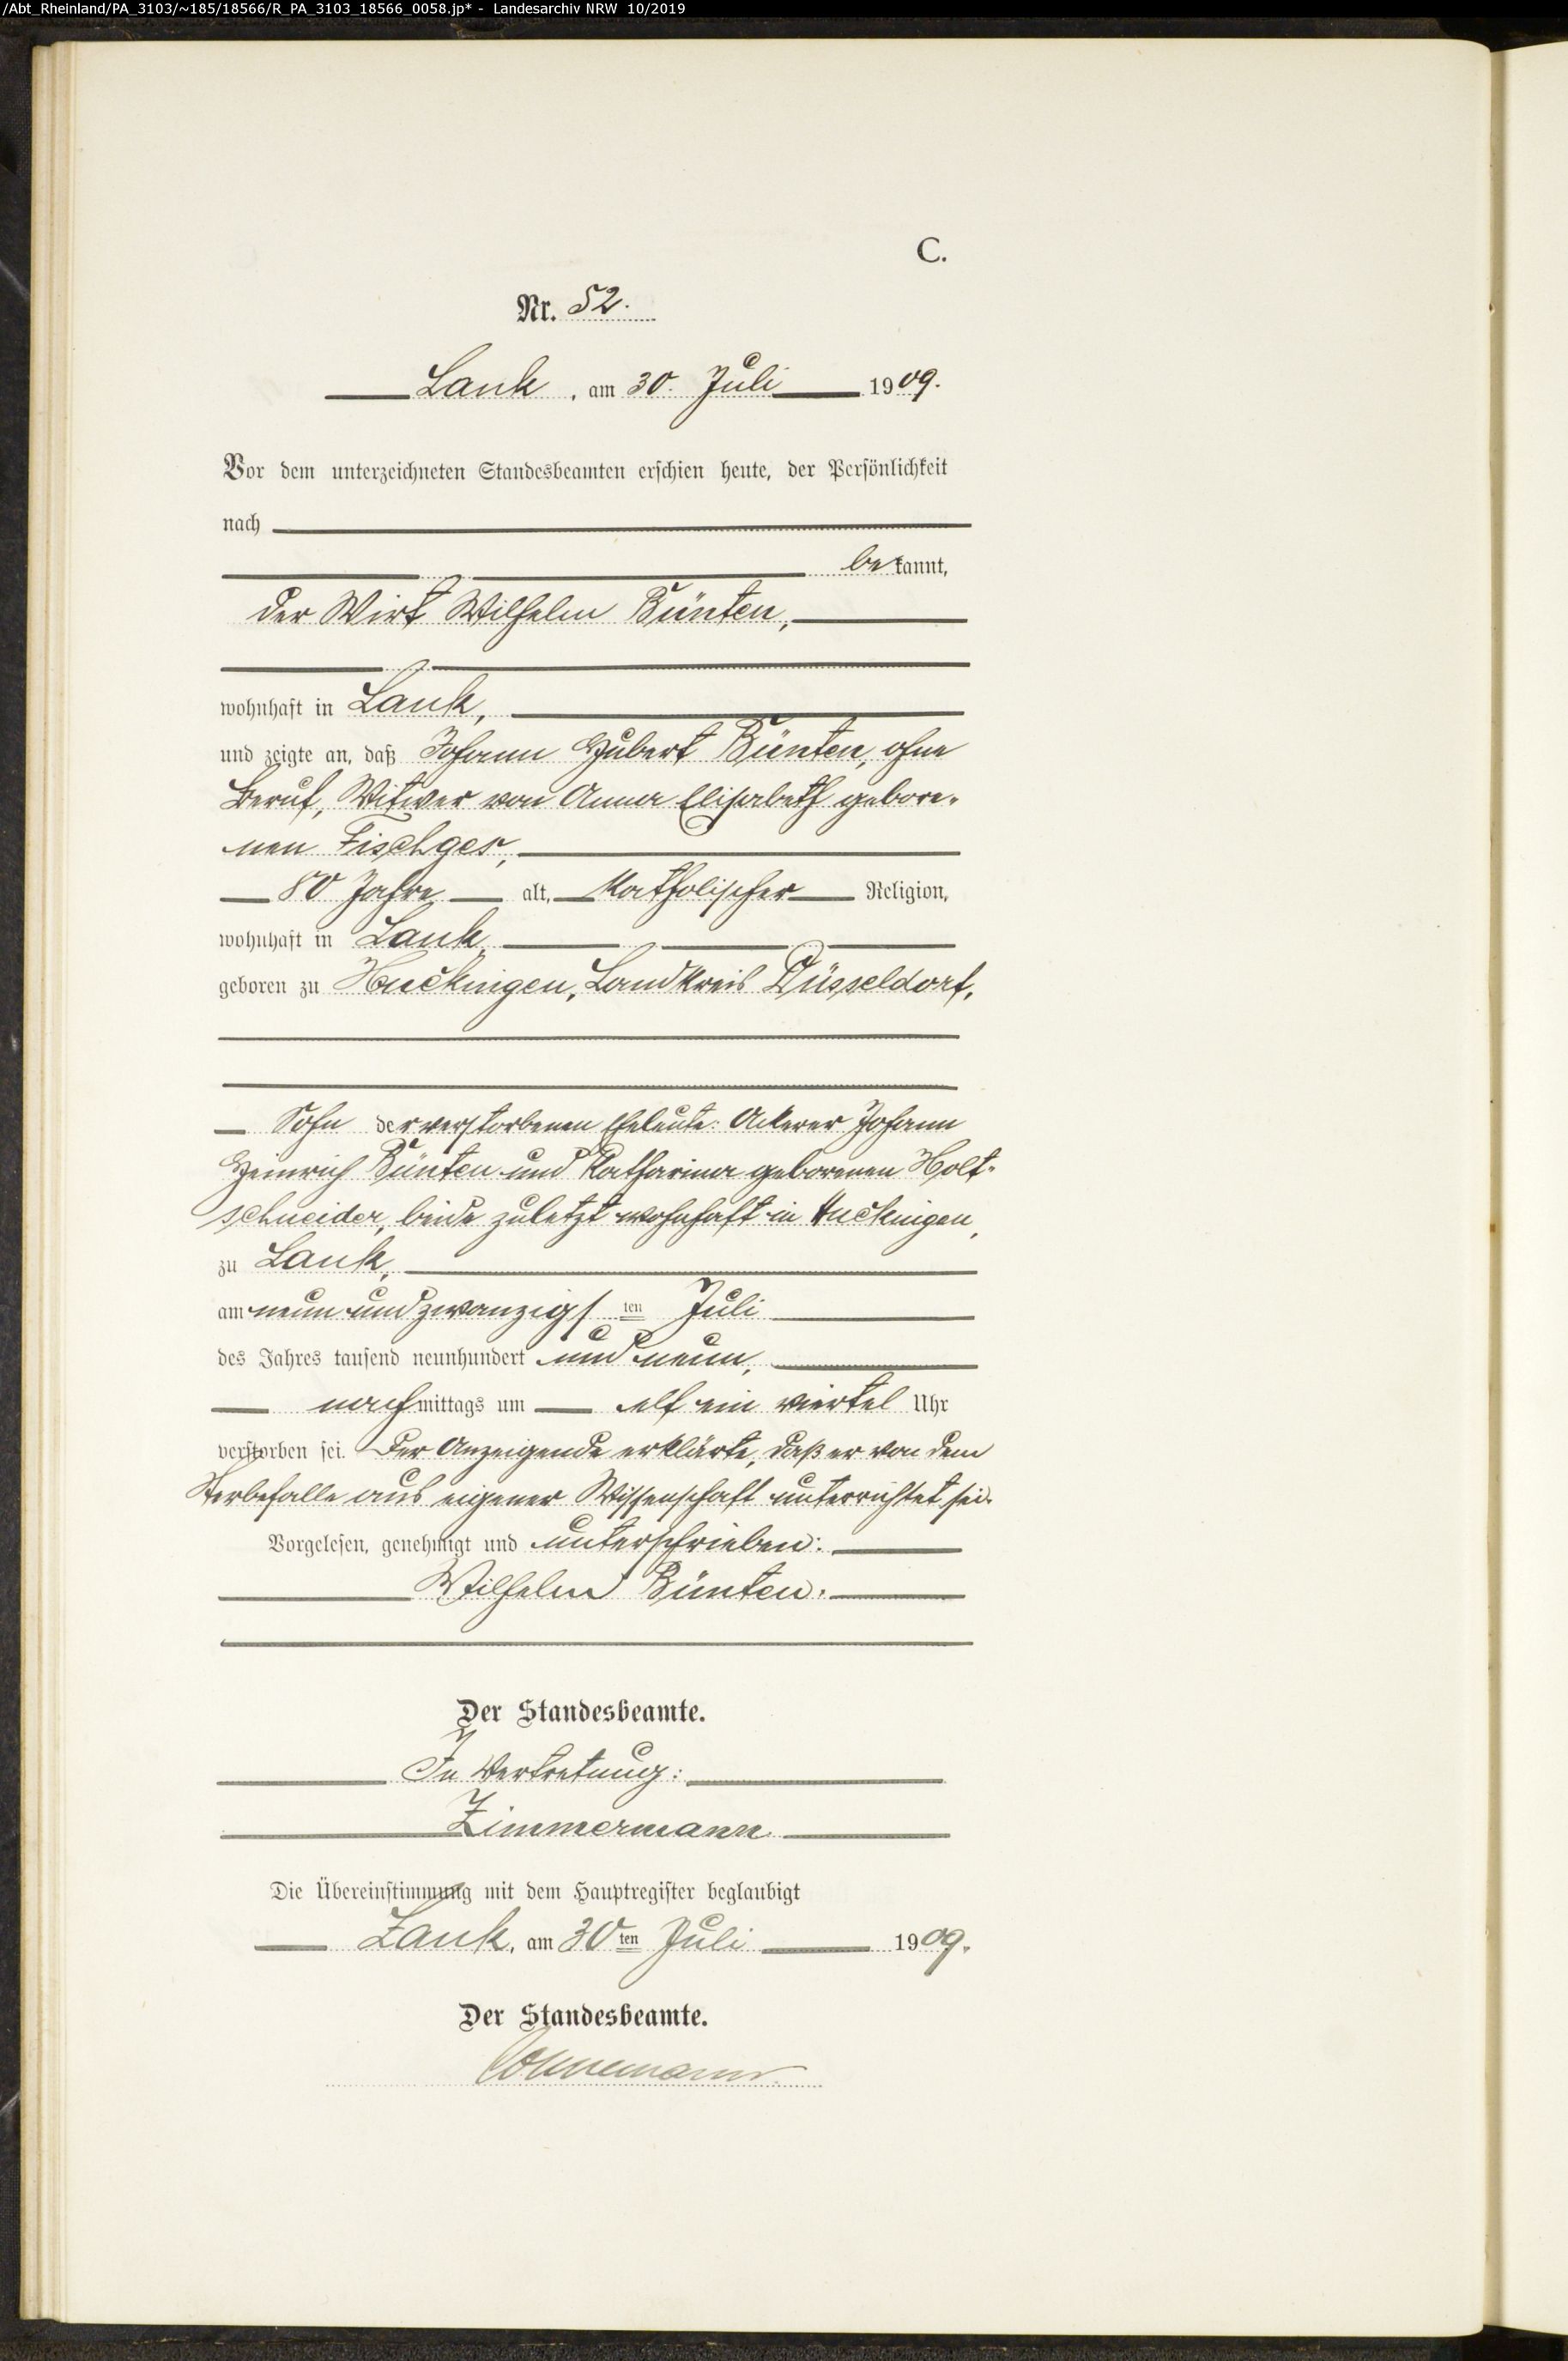 /Abt_Rheinland/PA_3103/~185/18566/R_PA_3103_18566_0058.jp* - Landesarchiv NRW 10/2019
C.
Nr. 52.
Lank, am 30. Juli 1909.
Vor dem unterzeichneten Standesbeamten erschien heute, der Persönlichkeit
nach
bekannt,
der Wirt Wilhelm Bünten,
wohnhaft in Lank,
und zeigte an, daß Johann Hubert Bünten, ohne
Beruf, Witwer von Anna Elisabeth gebore-
nen Fischges,
80 Jahre alt, katholischer Religion,
wohnhaft in Lank,
geboren zu Huckingen, Landkreis Düsseldorf,
Sohn der verstorbenen Eheleute: Ackerer Johann
Heinrich Bünten und Katharina geborenen Holt-
schneider, beide zuletzt wohnhaft in Huckingen,
zu Lank,
am neun und zwanzigsten Juli
des Jahres tausend neunhundert und neun,
nachmittags um elf ein viertel Uhr
verstorben sei. Der Anzeigende erklärte, daß er von dem
Sterbefalle aus eigener Wissenschaft unterrichtet sei.
Vorgelesen, genehmigt und unterschrieben:
Wilhelm Bünten.
Der Standesbeamte.
In Vertretung:
Zimmermann.
Die Übereinstimmung mit dem Hauptregister beglaubigt
Lank, am 30ten Juli 1909.
Der Standesbeamte.